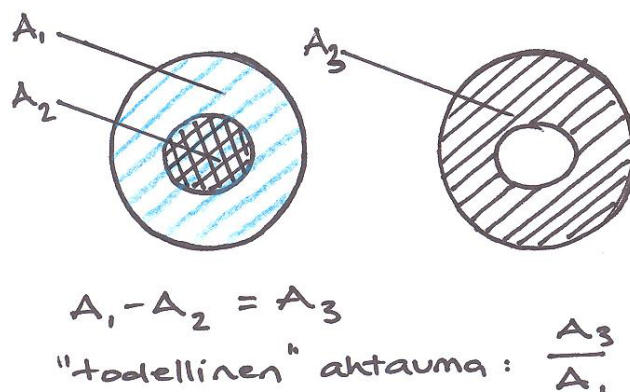 A₁
A₂
A₃
A₁-A₂ = A₃
"todellinen" ahtauma: A₃/A₁